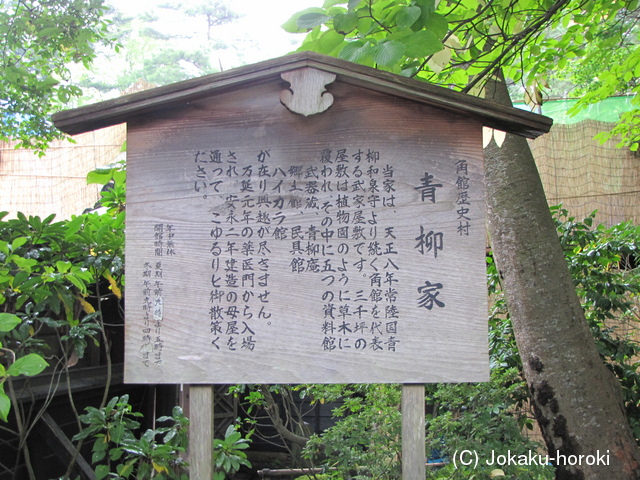 角館歴史村
青柳家
当家は、天正八年常陸国青
柳和泉守より続く角館を代表
する武家屋敷です。三千坪の
屋敷は植物園のように草木に
覆われ、その中に五つの資料館
武器蔵、青柳庵
郷土館、民具館
ハイカラ館
が在り興趣が尽きません。
万延元年の薬医門から入場
され、安永二年建造の母屋を
通って、ごゆるりと御散策く
ださい。
年中無休
開館時間
(C) Jokaku-horoki